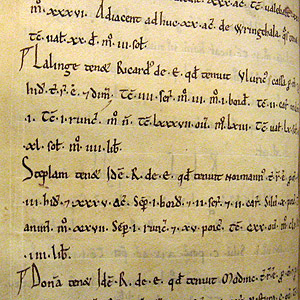 m̄. xxxvi. Adiacent adhuc xx. ac̄. de Wringehala. q̄
tc̄. ual̄. xx. d̄. m̄. iii. sol̄.
Lalinge tenet Ricard' de. e. qd tenuit Vluric'
hid. 7. dim̄. Tc̄. iiii. ser̄. m̄. iii. m̄. i. bord. Tc̄. ii. car̄.
i. Tc̄. i. runc̄. m̄. n̄. Tc̄. lxxxvii. oū. m̄. lxiii. Tc̄. ual̄. lx. sol̄.
xl. sol̄. m̄. iiii. lib̄.
Scoplam tenet Idē. R. de. e. qd tenuit Normann'. t. r. e. p
iii. hid. 7 xxxv. ac̄. Sēp. i. bord. 7. ii. ser̄. 7. ii. car̄. Silū. x. porc̄.
anim̄. m̄. xxvii. Sēp. i. runc̄. 7. xv. porc̄. Tc̄. cxx. oū. m̄.
iiii. lib̄.
Donā tenet Idē. R. de. e. qd tenuit Modinc. t. r. e. p